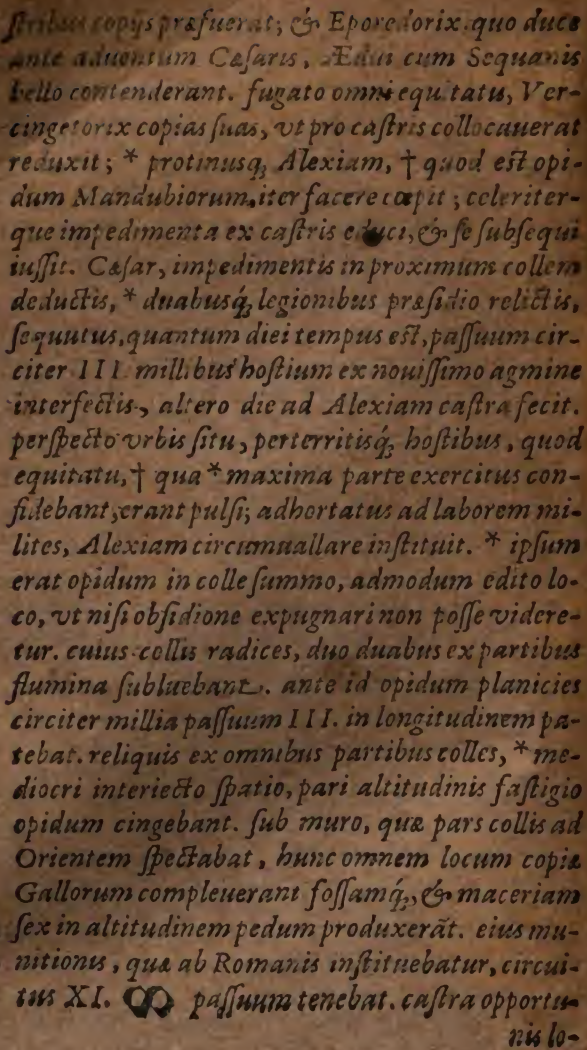 ſtribus copijs præfuerat; & Eporedorix. quo duce
ante aduentum Cæſaris, Ædui cum Sequanis
bello contenderant. fugato omni equitatu, Ver-
cingetorix copias ſuas, vt pro caſtris collocauerat
reduxit; * protinusq́; Alexiam, † quod eſt opi-
dum Mandubiorum, iter facere cœpit; celeriter-
que impedimenta ex caſtris educi, & ſe ſubſequi
iuſſit. Cæſar, impedimentis in proximum collem
deductis, * duabusq́; legionibus præſidio relictis,
ſequutus, quantum diei tempus eſt, paſſuum cir-
citer III millibus hoſtium ex nouiſſimo agmine
interfectis, altero die ad Alexiam caſtra fecit.
perſpecto vrbis ſitu, perterritisq́; hoſtibus, quod
equitatu, † qua * maxima parte exercitus con-
fidebant, erant pulſi; adhortatus ad laborem mi-
lites, Alexiam circumuallare inſtituit. * ipſum
erat opidum in colle ſummo, admodum edito lo-
co, vt niſi obſidione expugnari non poſſe videre-
tur. cuius collis radices, duo duabus ex partibus
flumina ſubluebant. ante id opidum planicies
circiter millia paſſuum III. in longitudinem pa-
tebat. reliquis ex omnibus partibus colles, * me-
diocri interiecto ſpatio, pari altitudinis faſtigio
opidum cingebant. ſub muro, quæ pars collis ad
Orientem ſpectabat, hunc omnem locum copiæ
Gallorum compleuerant foſſamq́;, & maceriam
ſex in altitudinem pedum produxerãt. eius mu-
nitionis, quæ ab Romanis inſtituebatur, circui-
tus XI. ꝏ paſſuum tenebat. caſtra opportu-
nis lo-